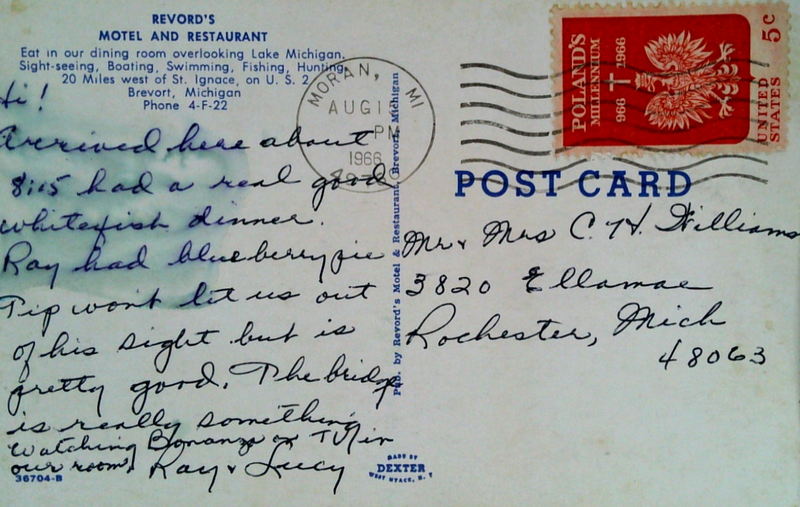 REVORD'S
MOTEL AND RESTAURANT
Eat in our dining room overlooking Lake Michigan.
Sight-seeing, Boating, Swimming, Fishing, Hunting.
20 Miles west of St. Ignace, on U. S. 2
Brevort, Michigan
Phone 4-F-22
Hi!
Arrived here about
8:15 had a real good
whitefish dinner.
Ray had blueberry pie
Tip won't let us out
of his sight but is
pretty good. The bridge
is really something
Watching Bonanza on TV in
our room. Ray & Lucy
36704-B
Pub. by Revord's Motel & Restaurant, Brevort, Michigan
MADE BY
DEXTER
WEST NYACK, N. Y.
MORAN, MI
AUG 1
PM
1966
POLAND'S
MILLENNIUM
966 1966
UNITED
STATES 5c
POST CARD
Mr & Mrs C. H. Williams
3820 Ellamae
Rochester, Mich
48063